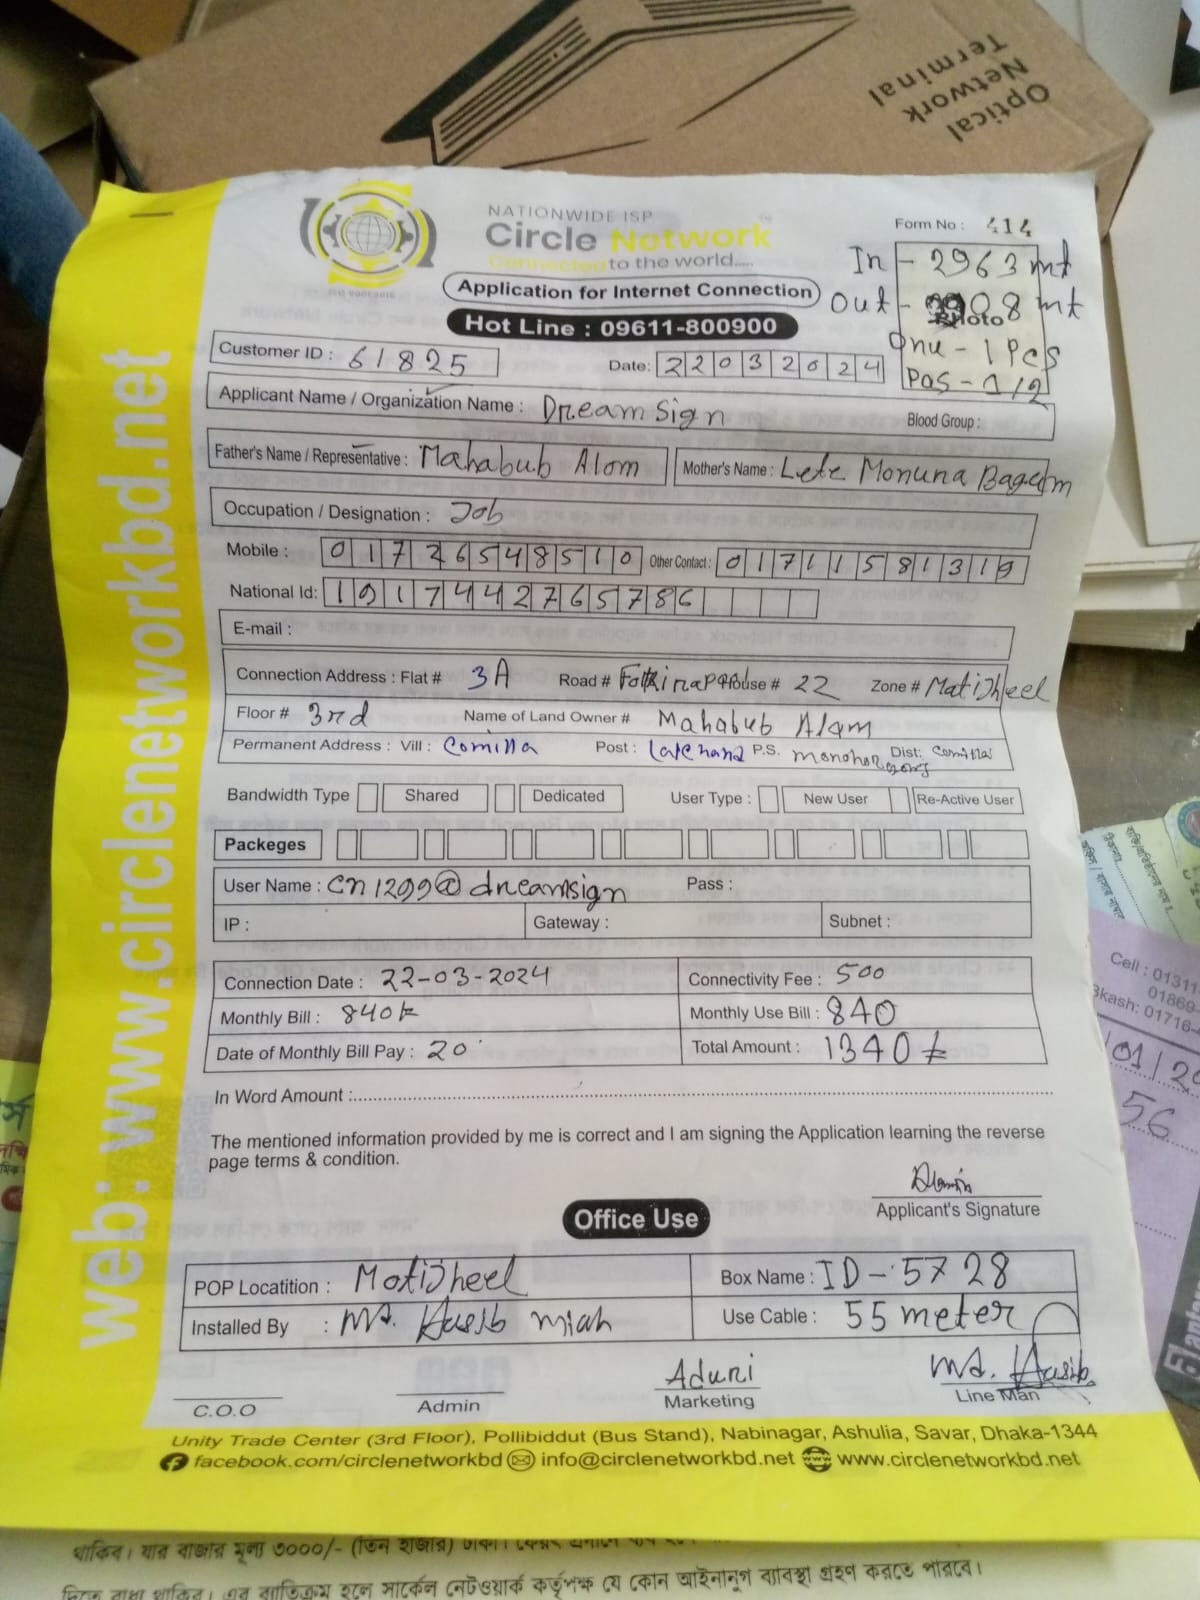 Optical
Network
Terminal
NATIONWIDE ISP
Circle Network
Connected to the world.....
ISO 9001:2015
Form No : 414
Application for Internet Connection
Hot Line : 09611-800900
In - 2963 mt
Out - 08 mt
Photo
Onu - 1 Pcs
Pas - 1/2
Customer ID : 61825
Date: 22032024
Applicant Name / Organization Name : Dream Sign
Blood Group :
Father's Name / Representative : Mahabub Alom
Mother's Name : Lete Monuna Bagam
Occupation / Designation : Job
Mobile : 01726548510 Other Contact : 01711581319
National Id: 1917442765786
E-mail :
Connection Address : Flat # 3A Road # House # 22 Zone # Matijheel
Floor # 3rd Name of Land Owner # Mahabub Alam
Permanent Address : Vill : Comilla Post : P.S. Dist: Comilla
Bandwidth Type Shared Dedicated User Type : New User Re-Active User
Packeges
User Name : cn1299@dreamsign Pass :
IP : Gateway : Subnet :
Connection Date : 22-03-2024 Connectivity Fee : 500
Monthly Bill : 840 Monthly Use Bill : 840
Date of Monthly Bill Pay : 20 Total Amount : 1340
In Word Amount :
The mentioned information provided by me is correct and I am signing the Application learning the reverse
page terms & condition.
Applicant's Signature
Office Use
POP Locatition : Motijheel Box Name : ID - 5728
Installed By : Md. Hasib miah Use Cable : 55 meter
C.O.O
Admin
Aduri
Marketing
Md. Hasib
Line Man
Unity Trade Center (3rd Floor), Pollibiddut (Bus Stand), Nabinagar, Ashulia, Savar, Dhaka-1344
facebook.com/circlenetworkbd info@circlenetworkbd.net www.circlenetworkbd.net
web: www.circlenetworkbd.net
Cell : 01311-
01869-
Bkash: 01716-
01/20
56
থাকিব। যার বাজার মূল্য ৩০০০/- (তিন হাজার)
দিতে বাধ্য থাকিব। এর ব্যতিক্রম হলে সার্কেল নেটওয়ার্ক কর্তৃপক্ষ যে কোন আইনানুগ ব্যাবস্থা গ্রহণ করতে পারবে।